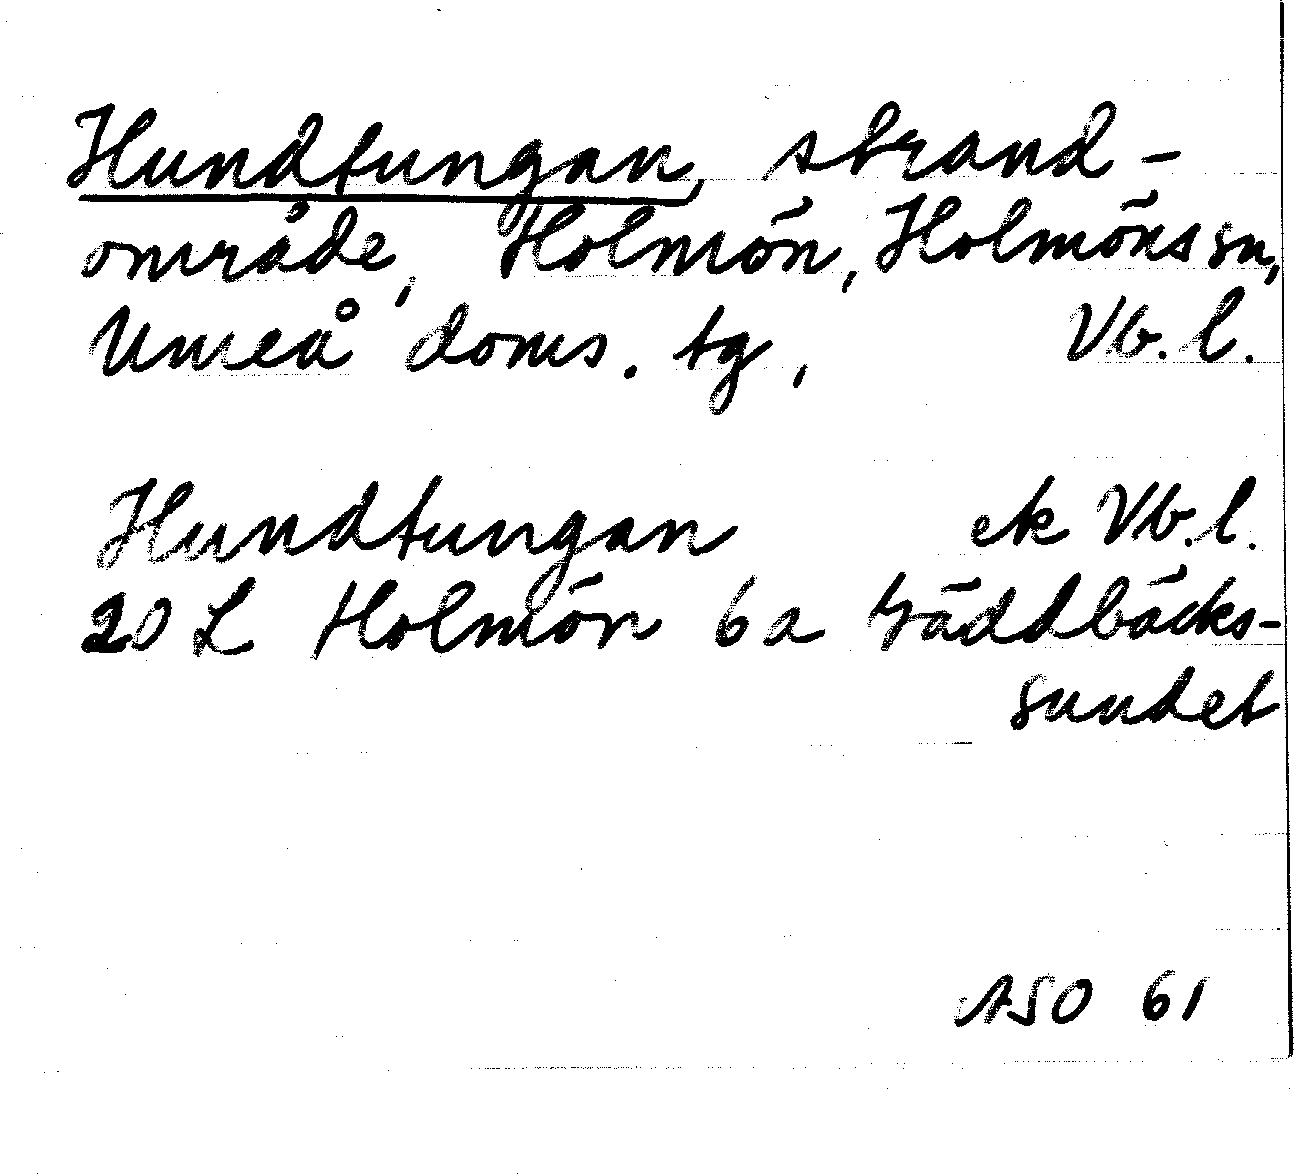 Hundtungan, strand-
område, Holmön, Holmöns sn,
Umeå doms. tg, Vb. l.
Hundtungan ek Vb. l.
20 L Holmön 6a Gäddbäcks-
sundet
ASO 61